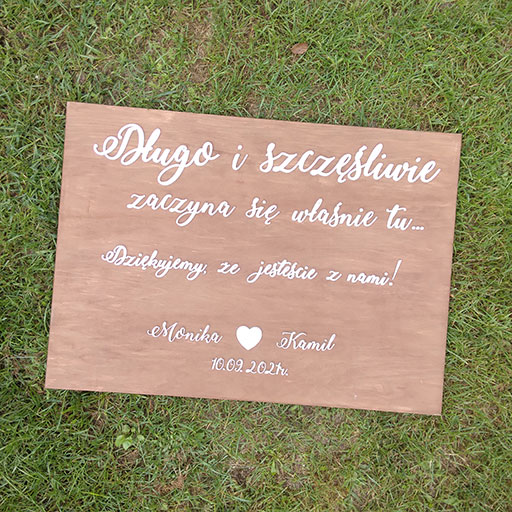 Długo i szczęśliwie
zaczyna się właśnie tu...
Dziękujemy, że jesteście z nami!
Monika Kamil
10.09.2021r.